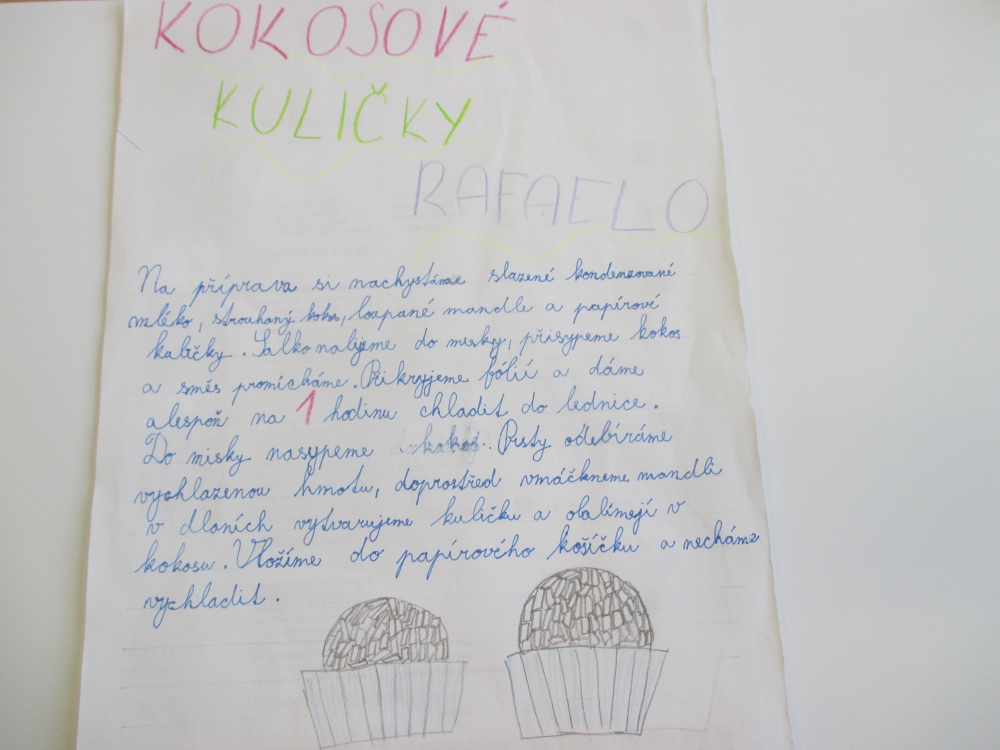 KOKOSOVÉ
KULIČKY
RAFAELO
Na příprava si nachystáme slazené kondenzované
mléko, strouhaný kokos, loupané mandle a papírové
kalíčky. Salko nalijeme do misky, přisypeme kokos
a směs promícháme. Přikryjeme fólií a dáme
alespoň na 1 hodinu chladit do lednice.
Do misky nasypeme kokos. Prsty odebíráme
vychlazenou hmotu, doprostřed vmáčkneme mandli
v dlaních vytvarujeme kuličku a obalímejí v
kokosu. Vložíme do papírového košíčku a necháme
vychladit.